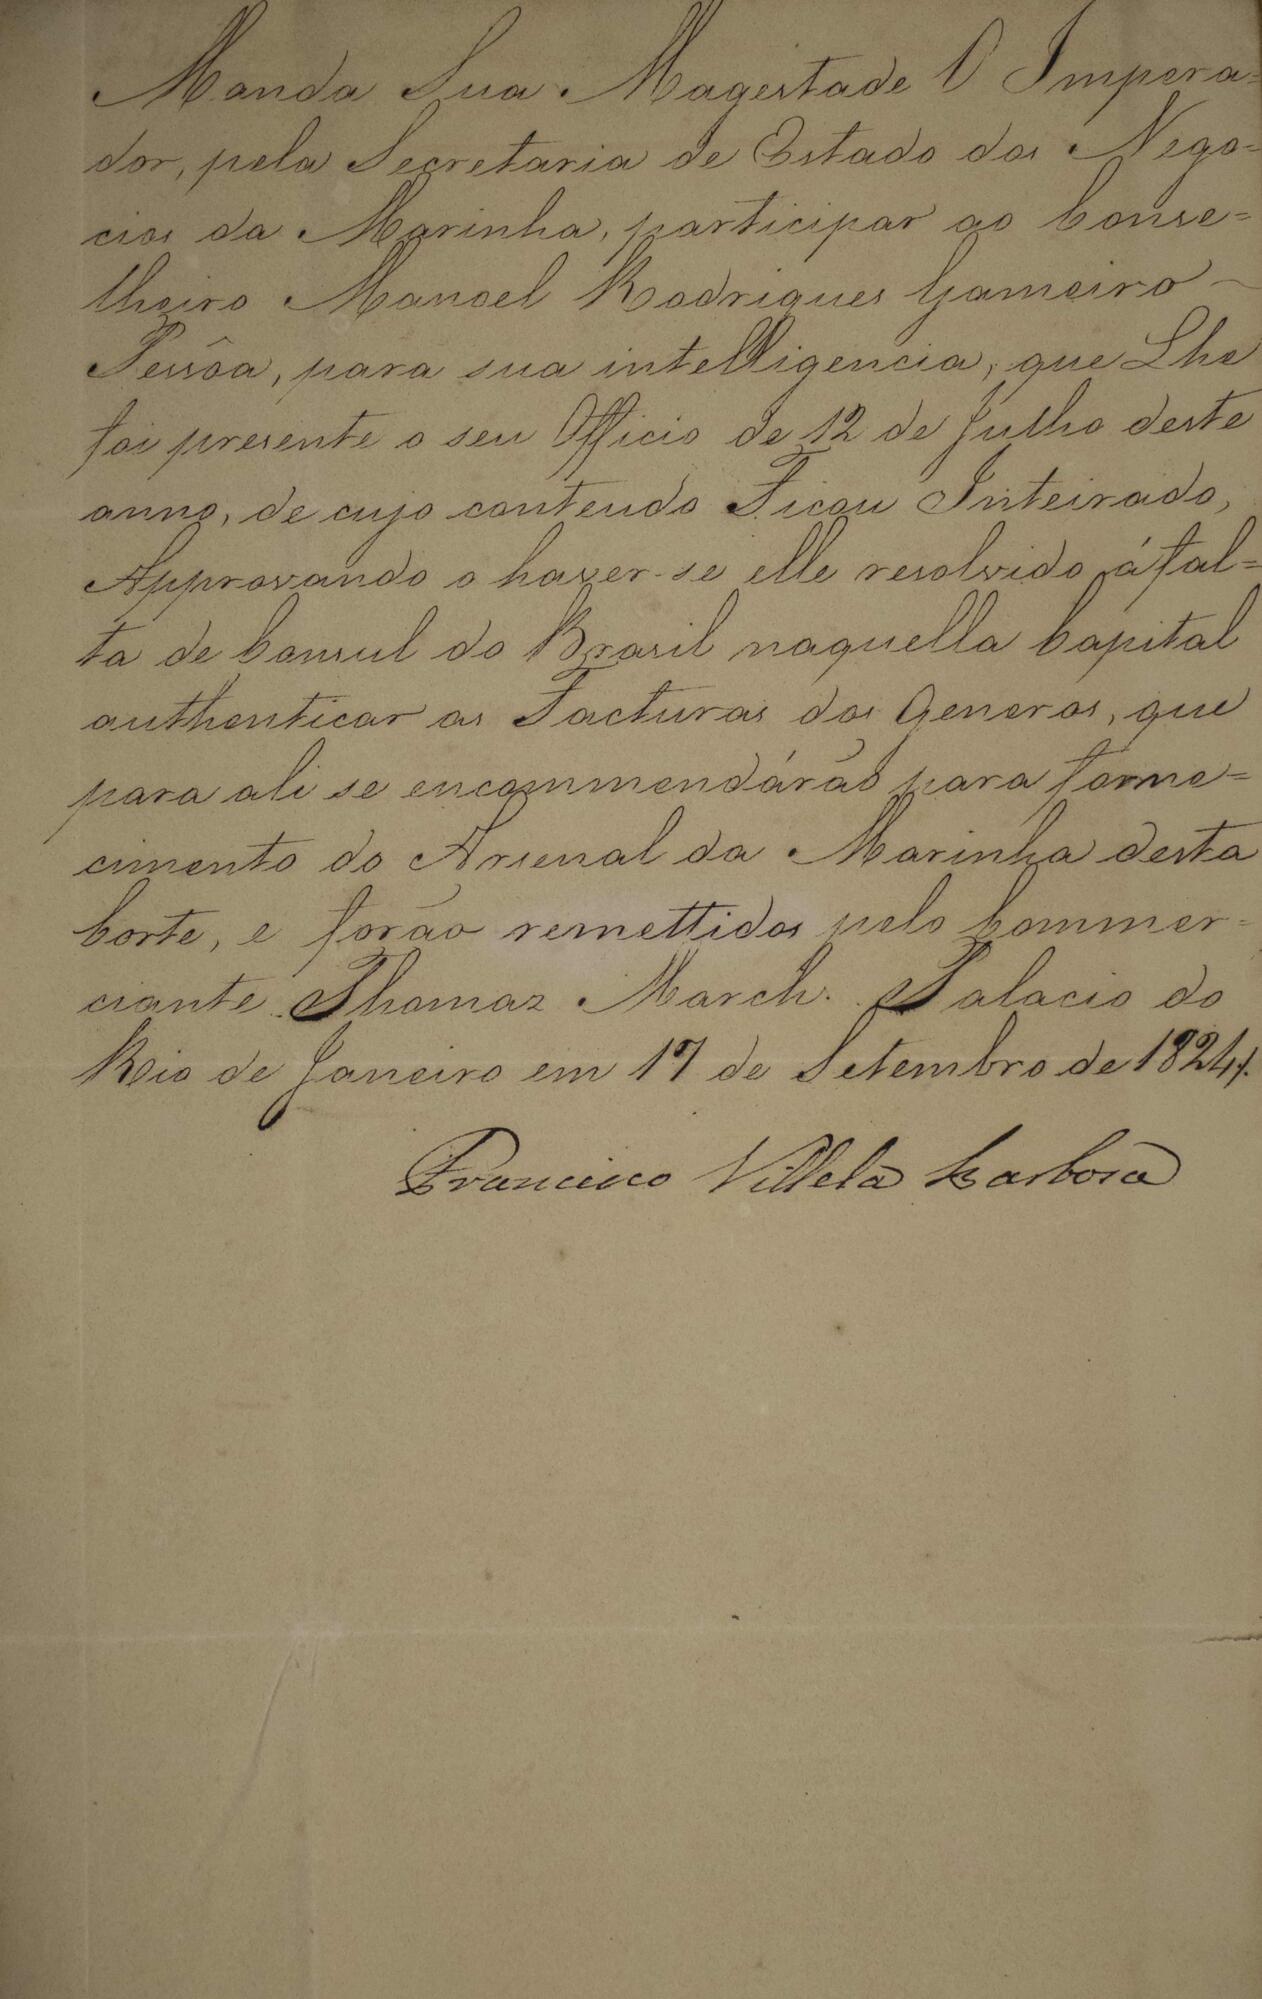 Manda Sua Magestade O Impera=
dor, pela Secretaria de Estado dos Nego=
cios da Marinha, participar ao Conse=
lheiro Manoel Rodrigues Gameiro
Pessôa, para sua intelligencia, que Lhe
foi presente o seu Officio de 12 de Julho deste
anno, de cujo conteudo Ficou Inteirado,
Approvando o haver-se elle resolvido á fal=
ta de Consul do Brasil naquella Capital
authenticar as Facturas dos Generos, que
para ali se encommendárão para forne=
cimento do Arsenal da Marinha desta
Corte, e forão remettidos pelo Commer=
ciante Thomaz March. Palacio do
Rio de Janeiro em 17 de Setembro de 1824.
Francisco Villela Barbosa